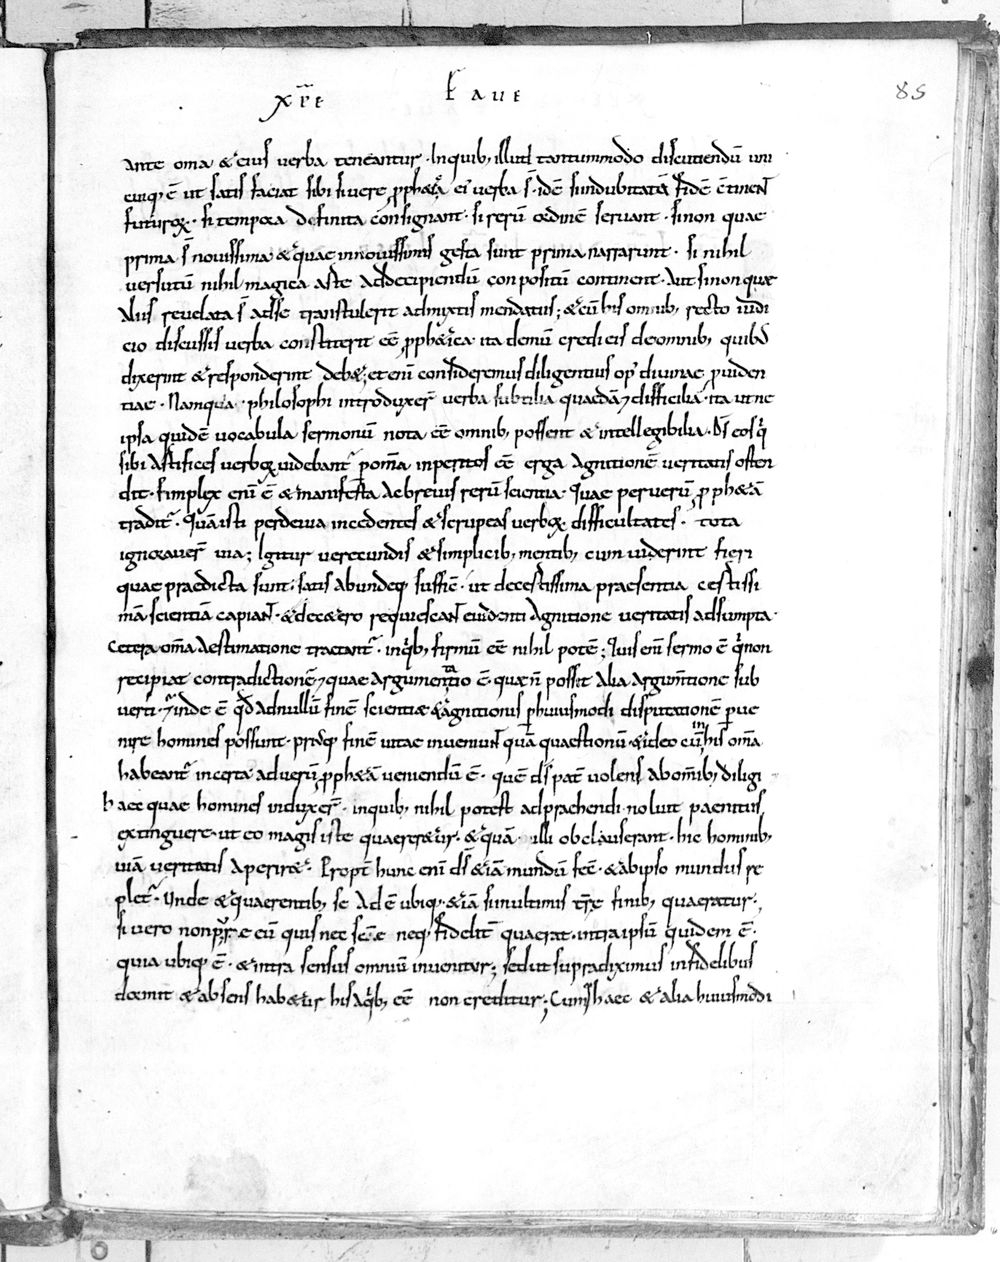 xp̅e fave
85
ante oma & eius verba teneantur. Inquib; illud tantummodo discutiendū uni
cuiq; ē ut satis faciat sibi si vere pph&ica ei' verba s̄. idē si indubitatā fidē c̄tinent
futurox. si tempora definita consignant. si rerū ordinē servant. si non quae
prima s̄ novissima & quae in novissimis gesta sunt prima narrarunt. si nihil
versutū nihil magica arte ad decipiendū conpositū continent. Aut si non quae
aliis revelata s̄ ad se transtulerit admixtis mendatiis; & cū his omnib; recto iudi
cio discussis verba constiterit eē pph&ica ita demū credi eis de omnib; quib;
dixerint & responderint deb&; et enī consideremus diligentius op' divinae puiden
tiae. Namqua philosophi introduxer̄ verba subtilia quaedā & difficilia. ita ut ne
ipsa quidē vocabula sermonū nota eē omnib; possent & intellegibilia. Ds̄ eos q
sibi artifices verborx videbant p om̄a inperitos eē erga agnitionē veritatis osten
dit. simplex enī ē & manifesta ac brevis rerū scientia. Quae per verū pph&ā
tradit. Quā isti per devia incedentes & scrupeas verborx difficultates. tota
ignoraver̄ via; Igitur verecundis & simplicib; mentib; cum viderint fieri
quae praedicta sunt. satis abundeq; suffic̄. ut de certissima praesentia certissi
mā scientiā capiant. & de c&ero requiescant evidenti agnitione veritatis adsumpta.
Cetera om̄a aestimatione tractant. inqb; firmū eē nihil potē; Quis enī sermo ē q non
recipiat contradictionē, & quae argumentatio ē. quae n̄ possit alia argumtione sub
verti. & inde ē qd ad nullū finē scientiae & agnitionis p huiusmodi disputationē pve
nire homines possunt. priusq; finē vitae inveniunt quā quaestionū. & ideo cū in his om̄a
habeant incerta ad verū pph&ā veniendū ē. quē ds̄ pat̄ volens ab om̄ib; diligi
haec quae homines induxer̄. in quib; nihil potest adpraehendi. noluit paenitus
extinguere. ut eo magis iste quaerer&ur. & quā illi obclauserant. hic hominib;
viā veritatis aperir&. Propt̄ hunc enī ds̄ & iā mundū fec̄. & ab ipso mundus re
plet. Unde & quaerentib; se adē ubiq;. & iā si in ultimis tr̄e finib; quaeratur;
si vero non pure eū quis nec sc̄e neq; fidelit̄ quaerat. intra ipsū quidem ē.
quia ubiq; ē. & intra sensus omniū invenitur; sed ut supra diximus infidelibus
dormit & absens hab&ur his aqb; eē non creditur; Cumq; haec & alia huiusmodi